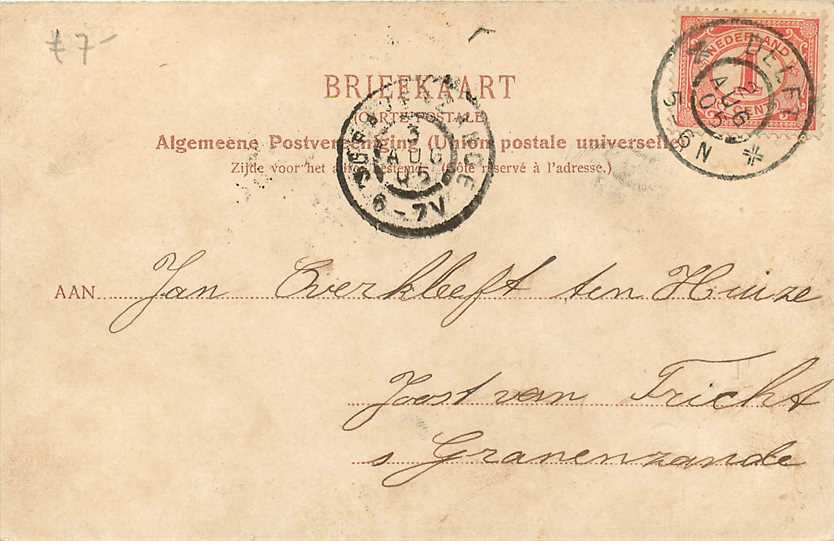 £ 7-
NEDERLAND
1
CENT
DELFT
2 AUG 05
5-6N
BRIEFKAART
(CARTE POSTALE)
Algemeene Postvereeniging (Union postale universelle)
Zijde voor het adres bestemd. (Côté réservé à l'adresse.)
3
AUG
05
6-7V
AAN Jan Everkleeft ten Huize
Joost van Tricht
s Granenzande